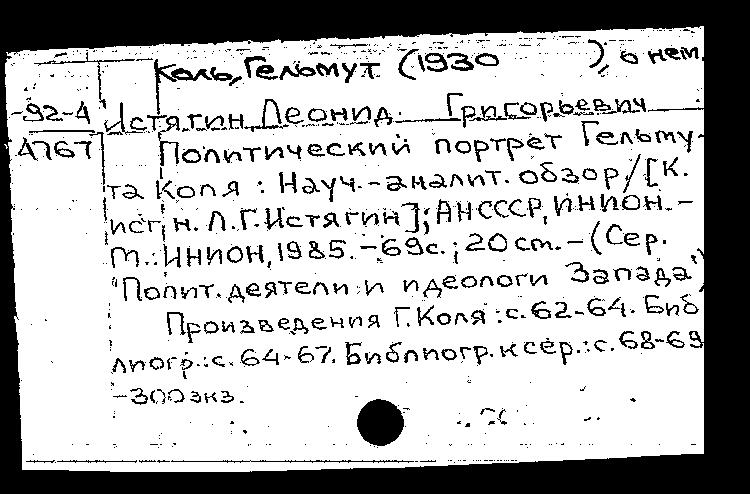 Коль, Гельмут (1930 ), о нем.
-92-4 Истягин, Леонид Григорьевич
4767 Политический портрет Гельму-
та Коля : Науч.-аналит. обзор / [К.
ист. н. Л.Г. Истягин]; АН СССР, ИНИОН. -
М.: ИНИОН, 1985. - 69с.; 20 см. - (Сер.
"Полит. деятели и идеологи Запада")
Произведения Г. Коля : с. 62-64. Биб
лиогр.: с. 64-67. Библиогр. к сер.: с. 68-69
-300 экз.